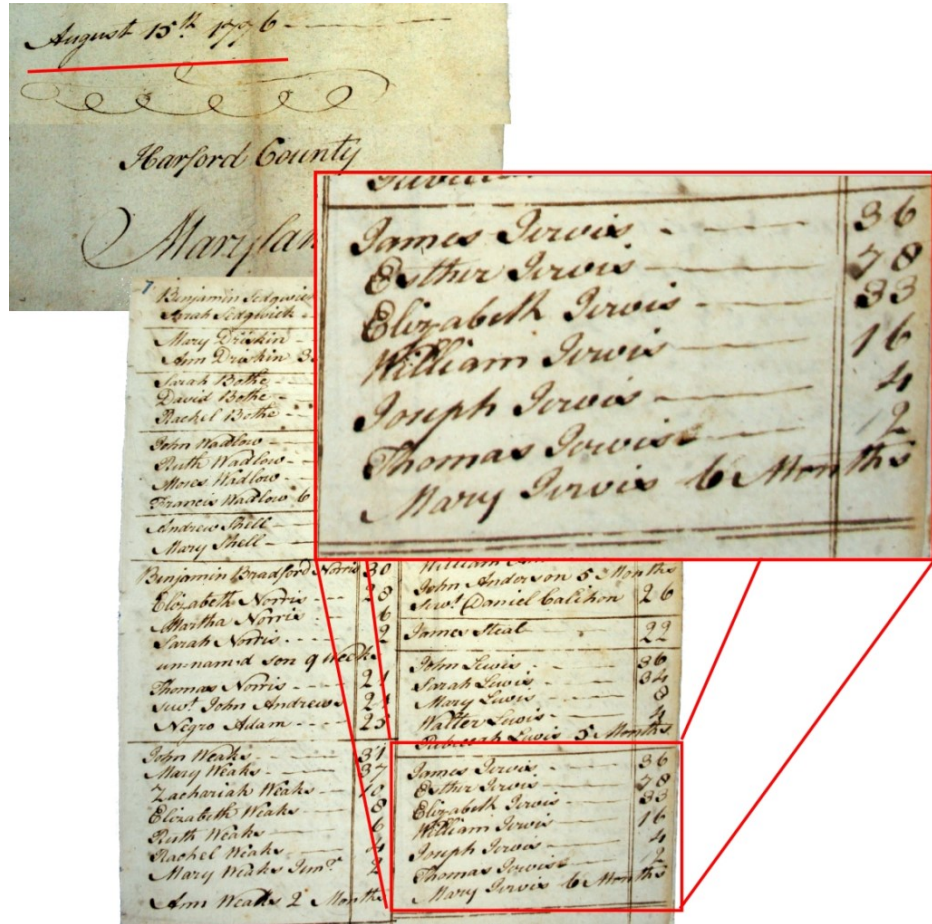 August 15th 1776
Harford County
Maryland
James Jervis - 36
Esther Jervis 78
Elizabeth Jervis 33
William Jervis 16
Joseph Jervis 4
Thomas Jervis 2
Mary Jervis 6 Months
7
Benjamin Sedgwick
Sarah Sedgwick
Mary Driskin
Ann Driskin 3
Sarah Bothe
David Bothe
Rachel Bothe
John Wadlow
Ruth Wadlow
Moses Wadlow
Francis Wadlow 6
Andrew Shell
Mary Shell
Benjamin Bradford Norris 30
Elizabeth Norris 28
Martha Norris 6
Sarah Norris 2
un-nam.d Son 9 Weeks
Thomas Norris 21
Serv.t John Andrews 24
Negro Adam 25
John Weaks 31
Mary Weaks 37
Zachariah Weaks 10
Elizabeth Weaks 8
Ruth Weaks 6
Rachel Weaks 4
Mary Weaks Jun.r 2
Ann Weaks 2 Months
William
John Anderson 5 Months
Serv.t Daniel Calihon 26
James Steal 22
John Lewis 36
Sarah Lewis 34
Mary Lewis 8
Walter Lewis 4
Rebeccah Lewis 5 Months
James Jervis 36
Esther Jervis 78
Elizabeth Jervis 33
William Jervis 16
Joseph Jervis 4
Thomas Jervis 2
Mary Jervis 6 Months